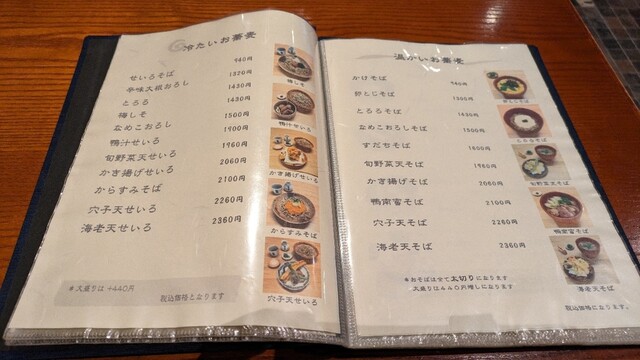 冷たいお蕎麦
せいろそば 940円
辛味大根おろし 1320円
とろろ 1430円
梅しそ 1430円
なめこおろし 1500円
鴨汁せいろ 1900円
旬野菜天せいろ 1960円
かき揚げせいろ 2060円
からすみそば 2100円
穴子天せいろ 2260円
海老天せいろ 2360円
*大盛りは +440円
税込価格となります
梅しそ
鴨汁せいろ
かき揚げせいろ
からすみそば
穴子天せいろ
温かいお蕎麦
かけそば 940円
卵とじそば 1300円
とろろそば 1430円
なめこおろしそば 1500円
すだちそば 1600円
旬野菜天そば 1960円
かき揚げそば 2060円
鴨南蛮そば 2100円
穴子天そば 2260円
海老天そば 2360円
*おそばは全て太切りになります
大盛りは440円増しになります
税込価格になります。
卵とじそば
とろろそば
旬野菜天そば
鴨南蛮そば
海老天そば